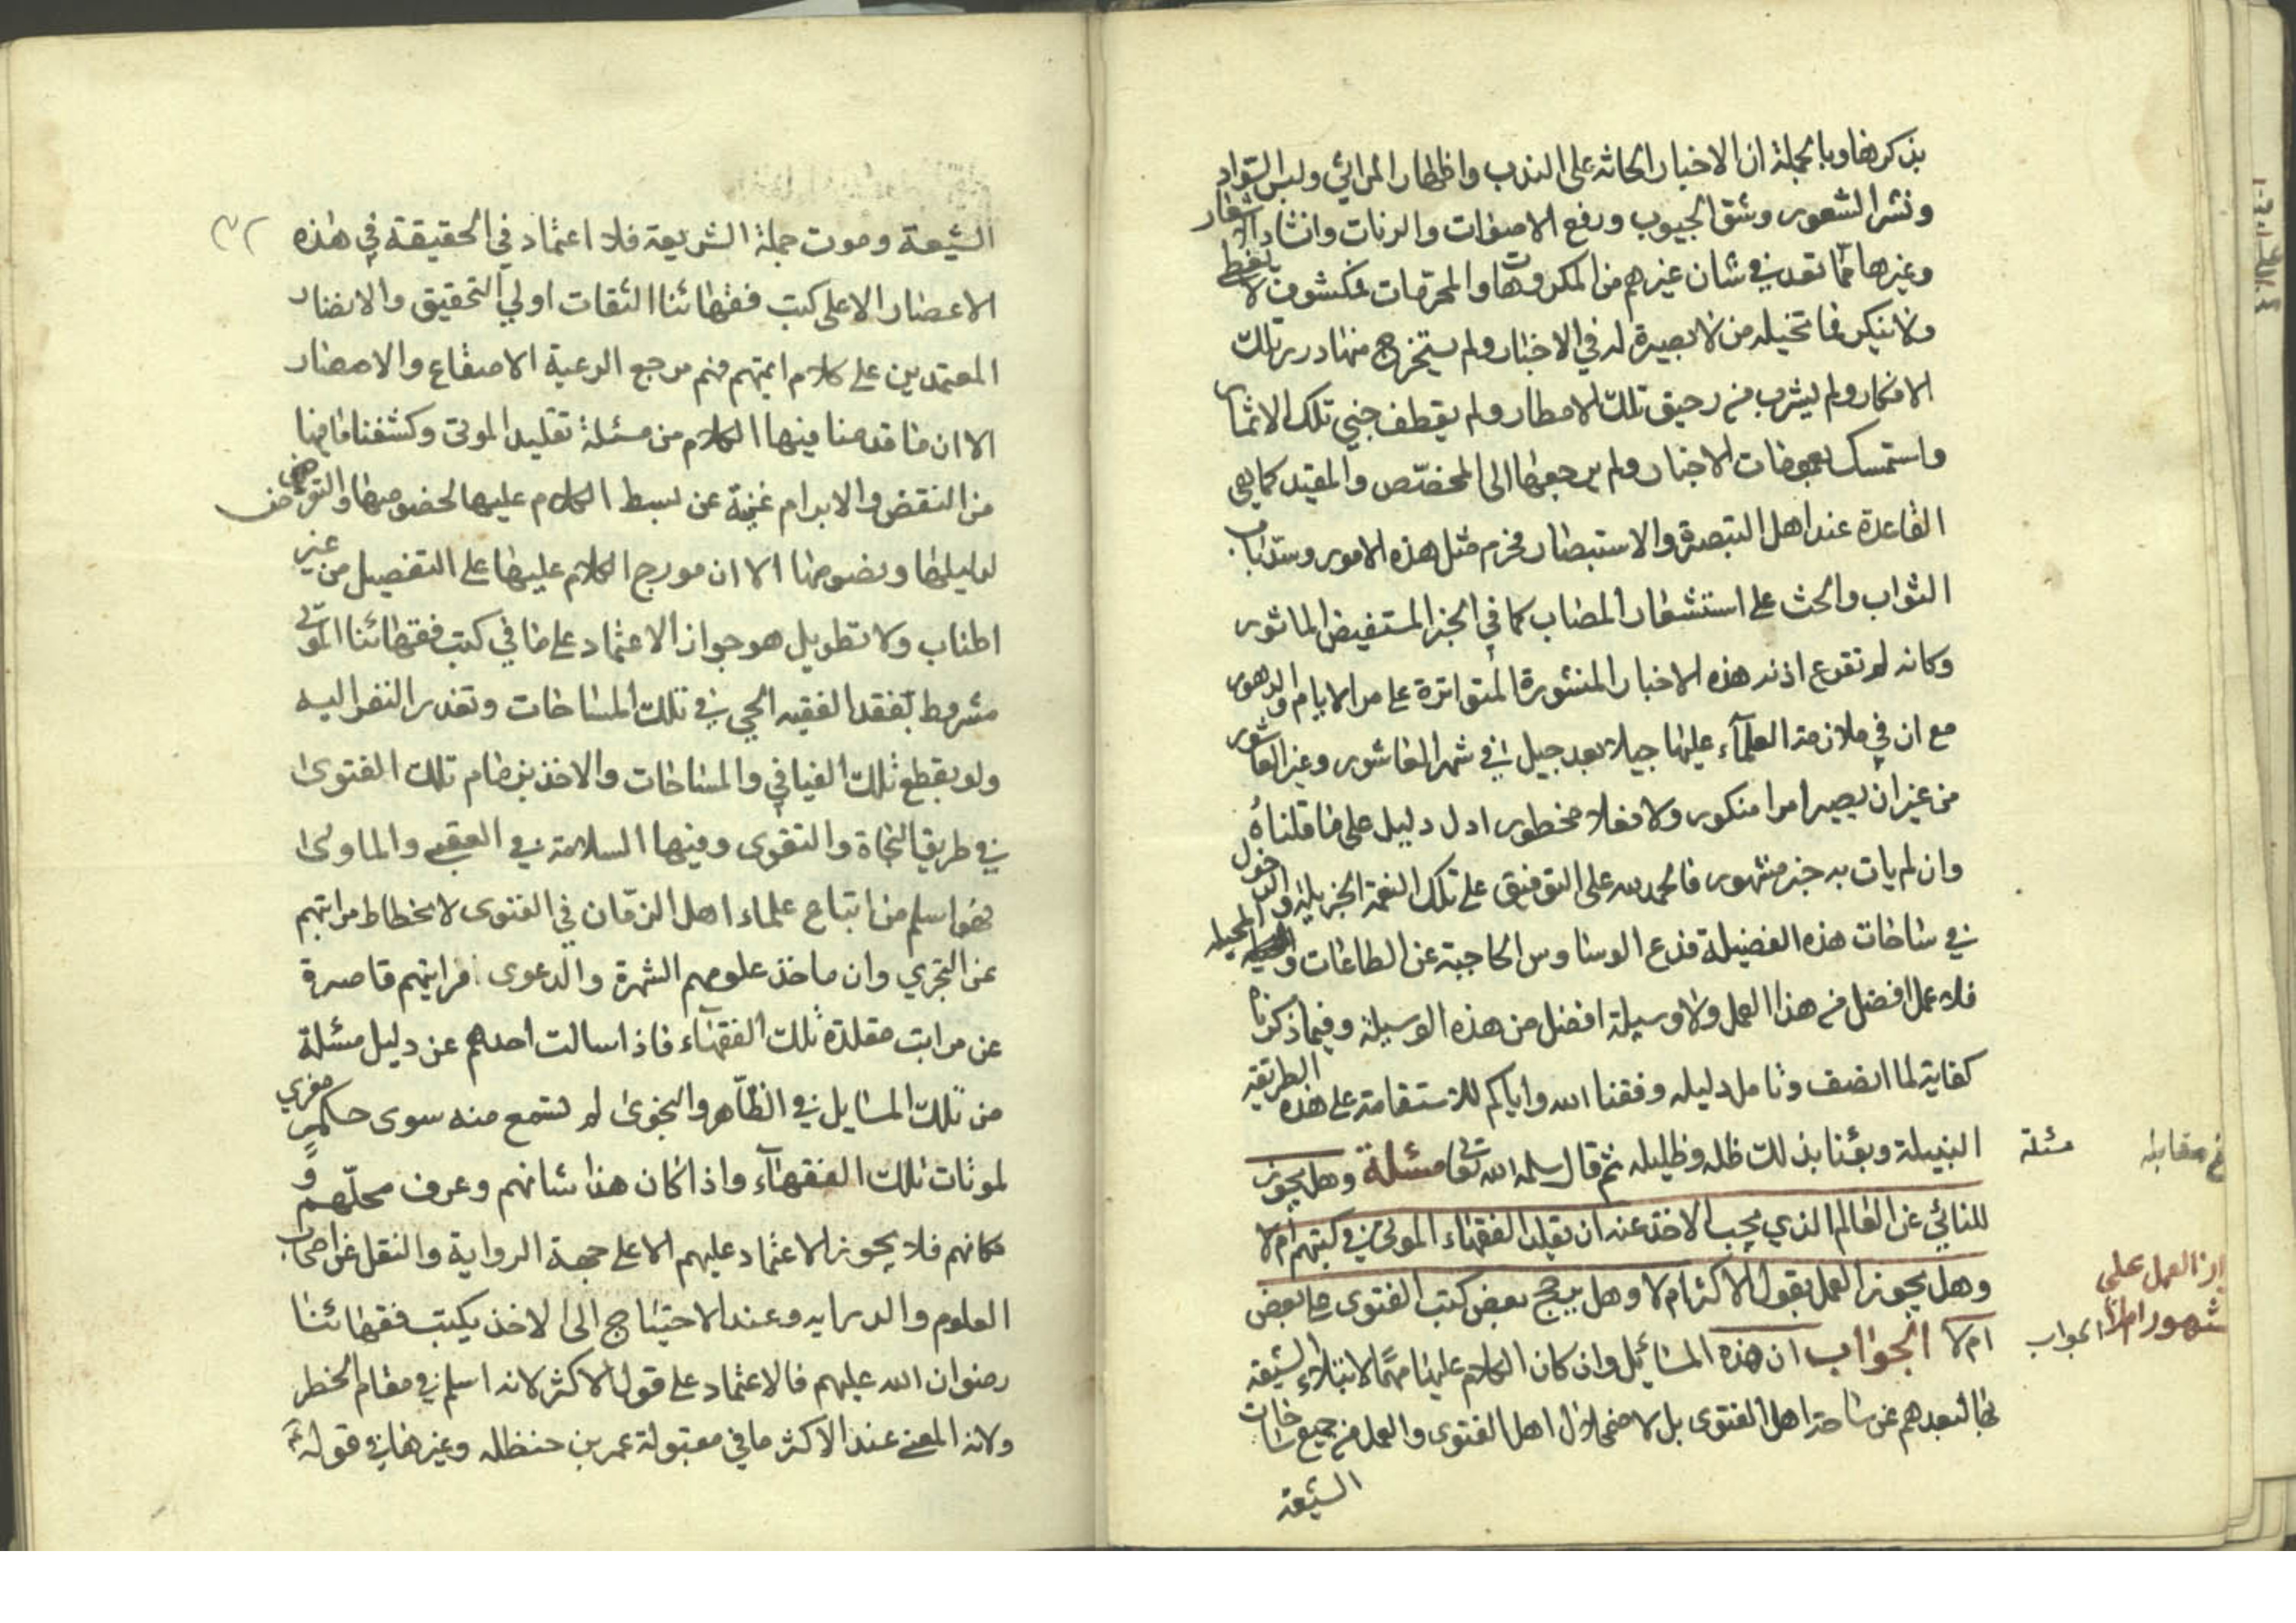 بذكرها وبالجملة ان الاخبار الحاثة على الندب واظهار المراثي ولبس السواد
ونشر الشعور وشق الجيوب ورفع الاصوات والرنات وانشاد الاشعار
وغيرها مما تعد في شان غيرهم من المكروهات والمحرمات مكشوف لا يغطى
ولا ينكر فما تخيله من لا بصيرة له في الاخبار ولم يستخرج منها درر تلك
الافكار ولم يشرب من رحيق تلك الامطار ولم يقطف جني تلك الاثمار
واستمسك بعمومات الاخبار ولم يرجعها الى المخصص والمقيد كما هي
القاعدة عند اهل التبصرة والاستبصار فحرم مثل هذه الامور وسد باب
الثواب والحث على استشعار المصاب كما في الخبر المستفيض الماثور
وكانه لم تقرع اذنه هذه الاخبار المنشورة المتواترة على مر الايام والدهور
مع ان في ملازمة العلماء عليها جيلا بعد جيل في شهر العاشور وغير العاشور
من غير ان يصير امرا منكور ولا فعلا محظور ادل دليل على ما قلناه
وان لم يات به خبر مشهور فالحمد لله على التوفيق على تلك النعمة الجزيلة والدخول
في ساحات هذه الفضيلة فدع الوساوس الحاجبة عن الطاعات والحيلة
فلا عمل افضل من هذا العمل ولا وسيلة افضل من هذه الوسيلة وفيما ذكرناه
كفاية لمن انصف وتامل دليله وفقنا الله واياكم للاستقامة على هذه الطريقة
النبيلة وبوئنا بذلك ظله وظليله ثم قال سلمه الله تعا مسئلة وهل يجوز
للنائي عن العالم الذي يجب الاخذ عنه ان يقلد الفقهاء الموتى في كتبهم ام لا
وهل يجوز العمل بقول الاكثر ام لا وهل يرجح بعض كتب الفتوى على بعض
ام لا الجواب ان هذه المسائل وان كان الكلام عليها مهما لابتلاء الشيعة
بها لبعدهم عن ساحة اهل الفتوى بل لاضمحلال اهل الفتوى والعمل من جميع ساحات
الشيعة
مسئلة
مقابله
العمل على
الجواب
الشيعة وموت حملة الشريعة فلا اعتماد في الحقيقة في هذه
الاعصار الا على كتب فقهائنا الثقات اولي التحقيق والانضار
المعتمدين على كلام ائمتهم فهم مرجع الرعية الاصقاع والامصار
الا ان ما قدمنا فيها الكلام من مسئلة تقليد الموتى وكشفنا ما فيها
من النقض والابرام غنية عن بسط الكلام عليها لخصوصها والتعرض
لدليلها ونصوصها الا ان مورج الكلام عليها على التفصيل من غير
اطناب ولا تطويل هو جواز الاعتماد على ما في كتب فقهائنا الموتى
مشروط بفقد الفقيه الحي في تلك المساحات وتعذر النفر اليه
ولو بقطع تلك الفيافي والمساحات والاخذ بزمام تلك الفتوى
في طريق النجاة والتقوى وفيها السلامة في العقبى والماوى
فهو اسلم من اتباع علماء اهل الزمان في الفتوى لانحطاط مراتبهم
عن التجزي وان ماخذ علومهم الشهرة والدعوى فرايتهم قاصرة
عن مراتب مقلدة تلك الفقهاء فاذا سالت احدهم عن دليل مسئلة
من تلك المسايل في الظاهر والنجوى لم تسمع منه سوى حكم مغري
لموتات تلك الفقهاء واذا كان هذا شانهم وعرف محلهم و
مكانهم فلا يجوز الاعتماد عليهم الا على جهة الرواية والنقل عن اصحاب
العلوم والدرايه وعند الاحتياج الى الاخذ بكتب فقهائنا
رضوان الله عليهم فالاعتماد على قول الاكثر لانه اسلم في مقام الخطر
ولانه المعني عند الاكثر ما في مقبولة عمر بن حنظله وغيرها في قوله